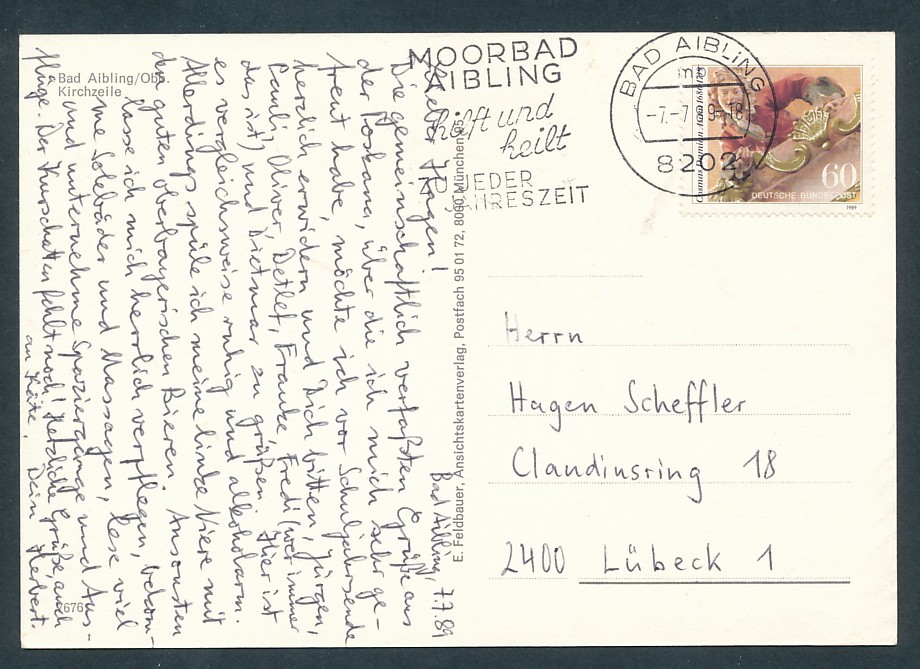 Bad Aibling/Obb.
Kirchzeile
MOORBAD
AIBLING
hilft und
heilt
ZU JEDER
JAHRESZEIT
BAD AIBLING
8202
Cosmas Damian Asam 1686-1739
60
DEUTSCHE BUNDESPOST
1989
Bad Aibling, 7.7.89
Lieber Hagen!
Die gemeinschaftlich verfaßten Grüße aus
der Poskana, über die ich mich sehr ge-
freut habe, möchte ich vor Schuljahrsende
herzlich erwidern und Dich bitten, Jürgen,
Pauli, Oliver, Detlef, Frauke, Fredi (wer immer
das ist) und Dietmar zu grüßen. Hier ist
es vergleichsweise ruhig und alkoholarm.
Allerdings spüle ich meine linke Niere mit
den guten oberbayerischen Bieren. Ansonsten
lasse ich mich herrlich verpflegen, bekom-
me Solebäder und Massagen, lese viel
und unternehme Spaziergänge und Aus-
flüge. Der Kurschatten fehlt noch! Herzliche Grüße, auch
an Käte, Dein Herbert
E. Feldbauer, Ansichtskartenverlag, Postfach 95 01 72, 8000 München 95
Herrn
Hagen Scheffler
Claudiusring 18
2400 Lübeck 1
7676